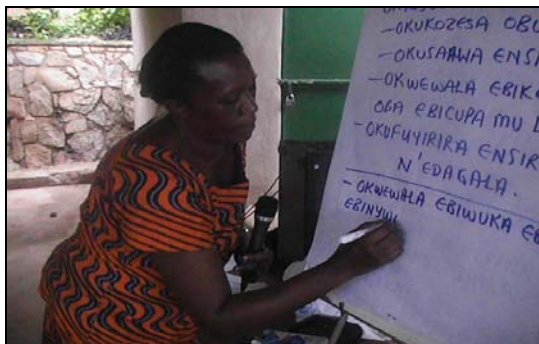 -OKUKOZESA OBU
-OKUSAAWA ENSI
-OKWEWALA EBIKO
OBA EBICUPA MU
-OKUFUYIRIRA ENSIR
N'EDAGALA.
-OKWEWALA EBIWUKA EB
EBINYWE